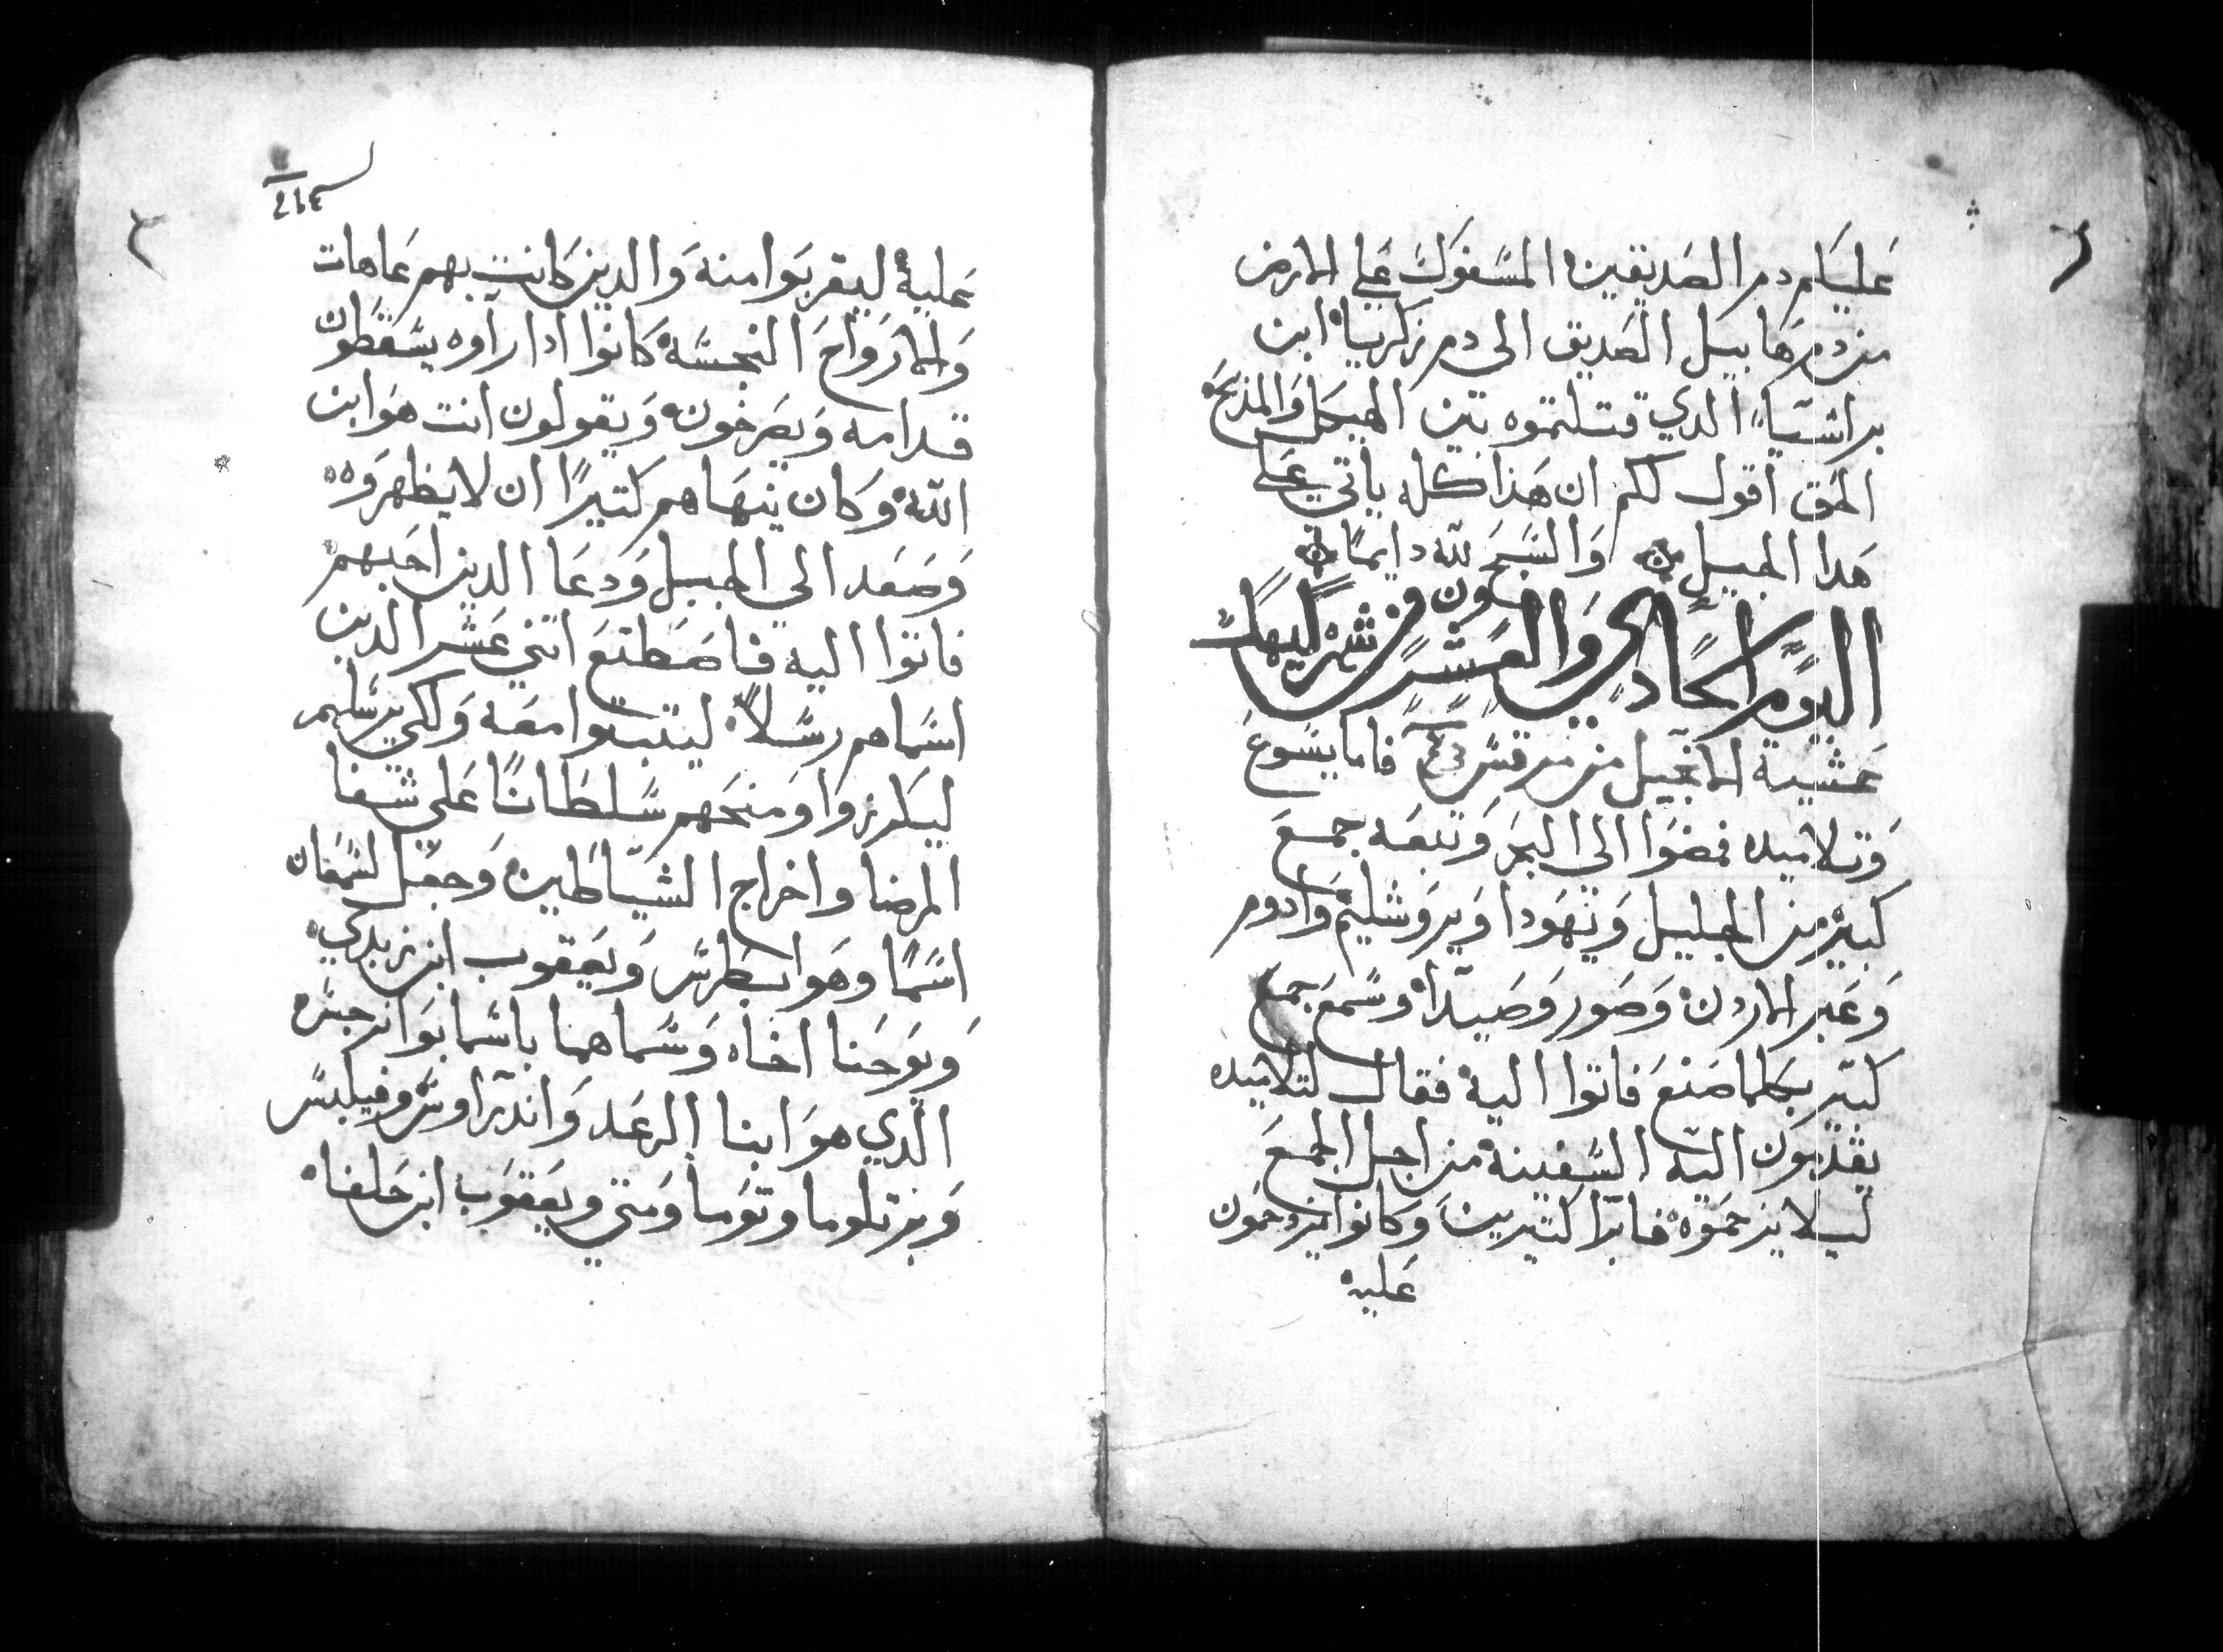 عليكم دم الصديقين المسفوك على الارض
من دم هابيل الصديق الى دم زكريا ابن
براشيا الدي قتلتموه بين الهيكل والمذبح
الحق اقول لكم ان هذا كله ياتي على
هدا الجيل والسبح لله دايمًا
اليوم الحادي والعشرون من شهر كيهك
عشية الانجيل من مرقس فاما يسوع
وتلاميده فمضوا الى البحر وتبعه جمع
كبير من الجليل ويهودا ويروشليم وادوم
وعبر الاردن وصور وصيدا وسمع جمع
كتير بكلما صنع فاتوا اليه فقال لتلاميده
يقدمون اليه السفينة من اجل الجمع
ليلا يزحموه فابرا كتيرين وكانوا يزدحمون
عليه
عليه ليقربوا منه والدين كانت بهم عاهات
والارواح النجسة كانوا ادا راوه يسقطون
قدامه ويصرخون ويقولون انت هو ابن
الله وكان ينهاهم كتيرًا ان لا يظهروه
وصعد الي الجبل ودعا الدين احبهم
فاتوا اليه فاصطنع اتني عشر الدين
اسماهم رسلاً ليتبتوا معه ولكي يرسلهم
ليكرزوا ومنحهم سلطانًا على شفا
المرضا واخراج الشياطين وجعل لسمعان
اسمًا وهو بطرس ويعقوب ابن زبدي
ويوحنا اخاه وسماهما باسما بوانرجس
الدي هو ابنا الرعد واندراوس وفيلبس
وبرتلوما وتوما ومتي ويعقوب ابن حلفا